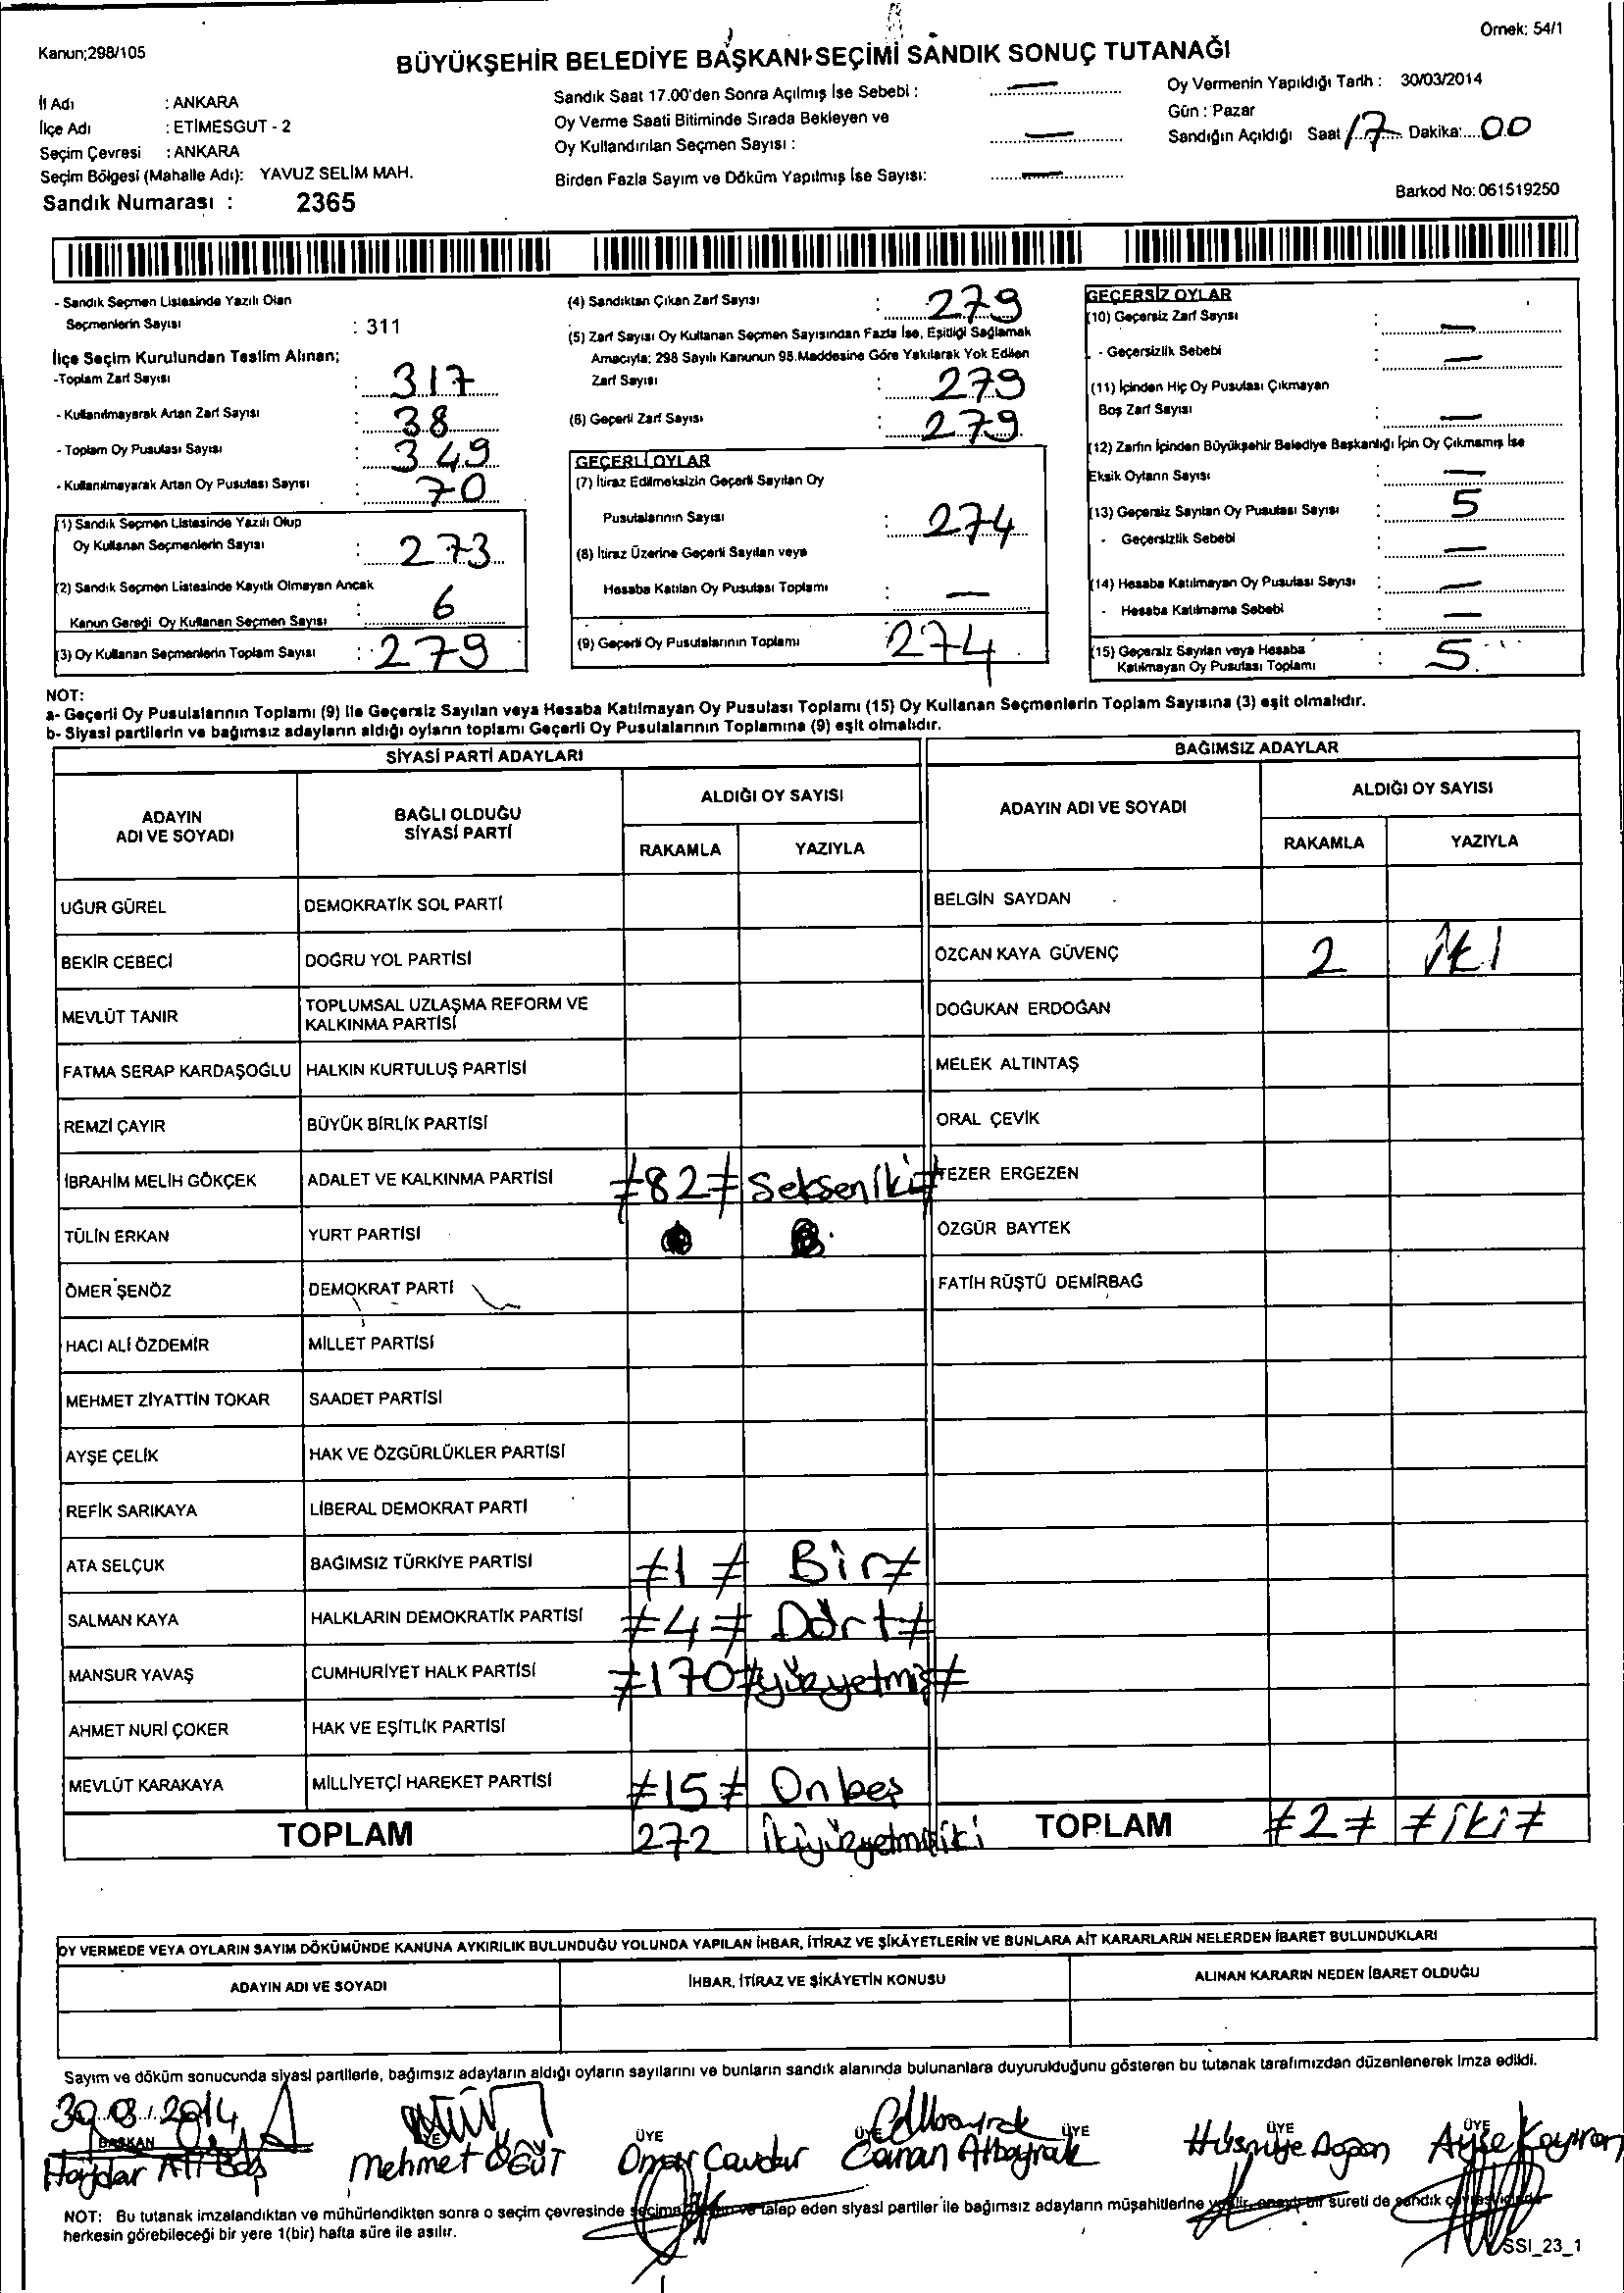 Örnek: 54/1
Kanun;298/105
BÜYÜKŞEHİR BELEDİYE BAŞKANI SEÇİMİ SANDIK SONUÇ TUTANAĞI
İl Adı : ANKARA
İlçe Adı : ETİMESGUT - 2
Seçim Çevresi : ANKARA
Seçim Bölgesi (Mahalle Adı): YAVUZ SELİM MAH.
Sandık Numarası : 2365
Sandık Saat 17.00'den Sonra Açılmış İse Sebebi : —
Oy Verme Saati Bitiminde Sırada Bekleyen ve
Oy Kullandırılan Seçmen Sayısı : —
Birden Fazla Sayım ve Döküm Yapılmış İse Sayısı: —
Oy Vermenin Yapıldığı Tarih : 30/03/2014
Gün : Pazar
Sandığın Açıldığı Saat 17 Dakika: 00
Barkod No: 061519250
- Sandık Seçmen Listesinde Yazılı Olan
Seçmenlerin Sayısı : 311
İlçe Seçim Kurulundan Teslim Alınan;
-Toplam Zarf Sayısı : 317
- Kullanılmayarak Artan Zarf Sayısı : 38
- Toplam Oy Pusulası Sayısı : 349
- Kullanılmayarak Artan Oy Pusulası Sayısı : 70
(1) Sandık Seçmen Listesinde Yazılı Olup
Oy Kullanan Seçmenlerin Sayısı : 273
(2) Sandık Seçmen Listesinde Kayıtlı Olmayan Ancak
Kanun Gereği Oy Kullanan Seçmen Sayısı : 6
(3) Oy Kullanan Seçmenlerin Toplam Sayısı : 279
(4) Sandıktan Çıkan Zarf Sayısı : 279
(5) Zarf Sayısı Oy Kullanan Seçmen Sayısından Fazla İse, Eşitliği Sağlamak
Amacıyla; 298 Sayılı Kanunun 98.Maddesine Göre Yakılarak Yok Edilen
Zarf Sayısı : 279
(6) Geçerli Zarf Sayısı : 279
GEÇERLİ OYLAR
(7) İtiraz Edilmeksizin Geçerli Sayılan Oy
Pusulalarının Sayısı : 274
(8) İtiraz Üzerine Geçerli Sayılan veya
Hesaba Katılan Oy Pusulası Toplamı : —
(9) Geçerli Oy Pusulalarının Toplamı 274
GEÇERSİZ OYLAR
(10) Geçersiz Zarf Sayısı : —
- Geçersizlik Sebebi : —
(11) İçinden Hiç Oy Pusulası Çıkmayan
Boş Zarf Sayısı : —
(12) Zarfın İçinden Büyükşehir Belediye Başkanlığı İçin Oy Çıkmamış İse
Eksik Oyların Sayısı : —
(13) Geçersiz Sayılan Oy Pusulası Sayısı : 5
- Geçersizlik Sebebi : —
(14) Hesaba Katılmayan Oy Pusulası Sayısı : —
- Hesaba Katılmama Sebebi : —
(15) Geçersiz Sayılan veya Hesaba
Katılmayan Oy Pusulası Toplamı : 5
NOT:
a- Geçerli Oy Pusulalarının Toplamı (9) ile Geçersiz Sayılan veya Hesaba Katılmayan Oy Pusulası Toplamı (15) Oy Kullanan Seçmenlerin Toplam Sayısına (3) eşit olmalıdır.
b- Siyasi partilerin ve bağımsız adayların aldığı oyların toplamı Geçerli Oy Pusulalarının Toplamına (9) eşit olmalıdır.
SİYASİ PARTİ ADAYLARI
ADAYIN ADI VE SOYADI
BAĞLI OLDUĞU SİYASİ PARTİ
ALDIĞI OY SAYISI
RAKAMLA YAZIYLA
UĞUR GÜREL DEMOKRATİK SOL PARTİ
BEKİR CEBECİ DOĞRU YOL PARTİSİ
MEVLÜT TANIR TOPLUMSAL UZLAŞMA REFORM VE KALKINMA PARTİSİ
FATMA SERAP KARDAŞOĞLU HALKIN KURTULUŞ PARTİSİ
REMZİ ÇAYIR BÜYÜK BİRLİK PARTİSİ
İBRAHİM MELİH GÖKÇEK ADALET VE KALKINMA PARTİSİ ≠82≠ Seksen İki≠
TÜLİN ERKAN YURT PARTİSİ
ÖMER ŞENÖZ DEMOKRAT PARTİ
HACI ALİ ÖZDEMİR MİLLET PARTİSİ
MEHMET ZİYATTİN TOKAR SAADET PARTİSİ
AYŞE ÇELİK HAK VE ÖZGÜRLÜKLER PARTİSİ
REFİK SARIKAYA LİBERAL DEMOKRAT PARTİ
ATA SELÇUK BAĞIMSIZ TÜRKİYE PARTİSİ ≠1≠ Bir≠
SALMAN KAYA HALKLARIN DEMOKRATİK PARTİSİ ≠4≠ Dört≠
MANSUR YAVAŞ CUMHURİYET HALK PARTİSİ ≠170≠ yüzyetmiş≠
AHMET NURİ ÇOKER HAK VE EŞİTLİK PARTİSİ
MEVLÜT KARAKAYA MİLLİYETÇİ HAREKET PARTİSİ ≠15≠ Onbeş
TOPLAM 272 İkiyüzyetmişiki
BAĞIMSIZ ADAYLAR
ADAYIN ADI VE SOYADI
ALDIĞI OY SAYISI
RAKAMLA YAZIYLA
BELGİN SAYDAN
ÖZCAN KAYA GÜVENÇ 2 iki
DOĞUKAN ERDOĞAN
MELEK ALTINTAŞ
ORAL ÇEVİK
TEZER ERGEZEN
ÖZGÜR BAYTEK
FATİH RÜŞTÜ DEMİRBAĞ
TOPLAM ≠2≠ ≠iki≠
OY VERMEDE VEYA OYLARIN SAYIM DÖKÜMÜNDE KANUNA AYKIRILIK BULUNDUĞU YOLUNDA YAPILAN İHBAR, İTİRAZ VE ŞİKÂYETLERİN VE BUNLARA AİT KARARLARIN NELERDEN İBARET BULUNDUKLARI
ADAYIN ADI VE SOYADI İHBAR, İTİRAZ VE ŞİKÂYETİN KONUSU ALINAN KARARIN NEDEN İBARET OLDUĞU
Sayım ve döküm sonucunda siyasi partilerle, bağımsız adayların aldığı oyların sayılarını ve bunların sandık alanında bulunanlara duyurulduğunu gösteren bu tutanak tarafımızdan düzenlenerek imza edildi.
30.03.2014
BAŞKAN ÜYE ÜYE ÜYE ÜYE ÜYE
Haydar Ali Baş Mehmet ÖĞÜT Ömer Canan Albayrak Hüsniye Doğan Ayşe
NOT: Bu tutanak imzalandıktan ve mühürlendikten sonra o seçim çevresinde seçime talep eden siyasi partiler ile bağımsız adayların müşahitlerine verilir, bir sureti de sandık
herkesin görebileceği bir yere 1(bir) hafta süre ile asılır.
SSI_23_1